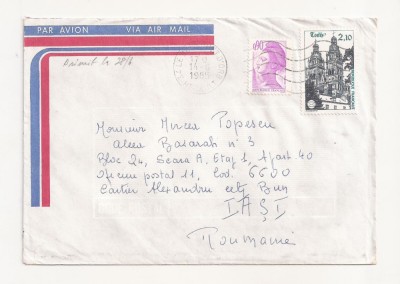 PAR AVION VIA AIR MAIL
Primit la 28/6
1985
0,80
Toul
2,10
Monsieur Mircea Popescu
Aleea Basarab n° 3
Bloc 24, Scara A, Etaj 3, Apart. 40
Oficiul postal 11, Cod. 6600
Cartier Alexandru cel Bun
IAȘI
Roumanie